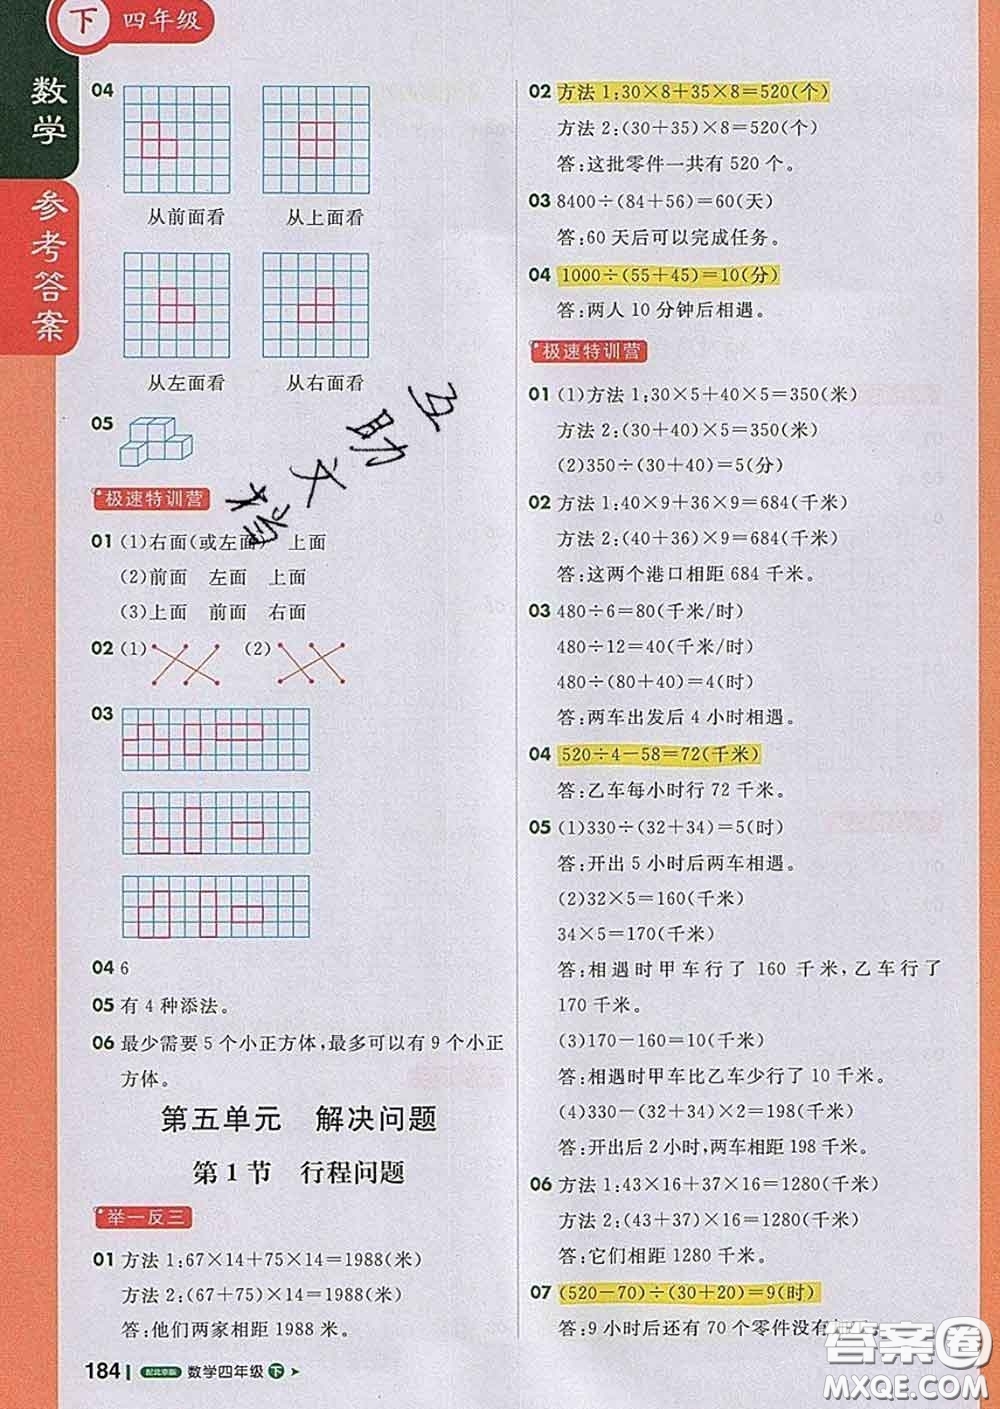 下 四年级
数学
参考答案
04
从前面看 从上面看
从左面看 从右面看
05
极速特训营
01 (1)右面(或左面) 上面
(2)前面 左面 上面
(3)上面 前面 右面
02 (1) (2)
03
04 6
05 有 4 种添法。
06 最少需要 5 个小正方体,最多可以有 9 个小正
方体。
第五单元 解决问题
第 1 节 行程问题
举一反三
01 方法 1:67×14+75×14=1988(米)
方法 2:(67+75)×14=1988(米)
答:他们两家相距 1988 米。
184 配北京版 数学四年级 下
02 方法 1:30×8+35×8=520(个)
方法 2:(30+35)×8=520(个)
答:这批零件一共有 520 个。
03 8400÷(84+56)=60(天)
答:60 天后可以完成任务。
04 1000÷(55+45)=10(分)
答:两人 10 分钟后相遇。
极速特训营
01 (1)方法 1:30×5+40×5=350(米)
方法 2:(30+40)×5=350(米)
(2)350÷(30+40)=5(分)
02 方法 1:40×9+36×9=684(千米)
方法 2:(40+36)×9=684(千米)
答:这两个港口相距 684 千米。
03 480÷6=80(千米/时)
480÷12=40(千米/时)
480÷(80+40)=4(时)
答:两车出发后 4 小时相遇。
04 520÷4-58=72(千米)
答:乙车每小时行 72 千米。
05 (1)330÷(32+34)=5(时)
答:开出 5 小时后两车相遇。
(2)32×5=160(千米)
34×5=170(千米)
答:相遇时甲车行了 160 千米,乙车行了
170 千米。
(3)170-160=10(千米)
答:相遇时甲车比乙车少行了 10 千米。
(4)330-(32+34)×2=198(千米)
答:开出后 2 小时,两车相距 198 千米。
06 方法 1:43×16+37×16=1280(千米)
方法 2:(43+37)×16=1280(千米)
答:它们相距 1280 千米。
07 (520-70)÷(30+20)=9(时)
答:9 小时后还有 70 个零件没有
互助文档
答案圈
MXQE.COM